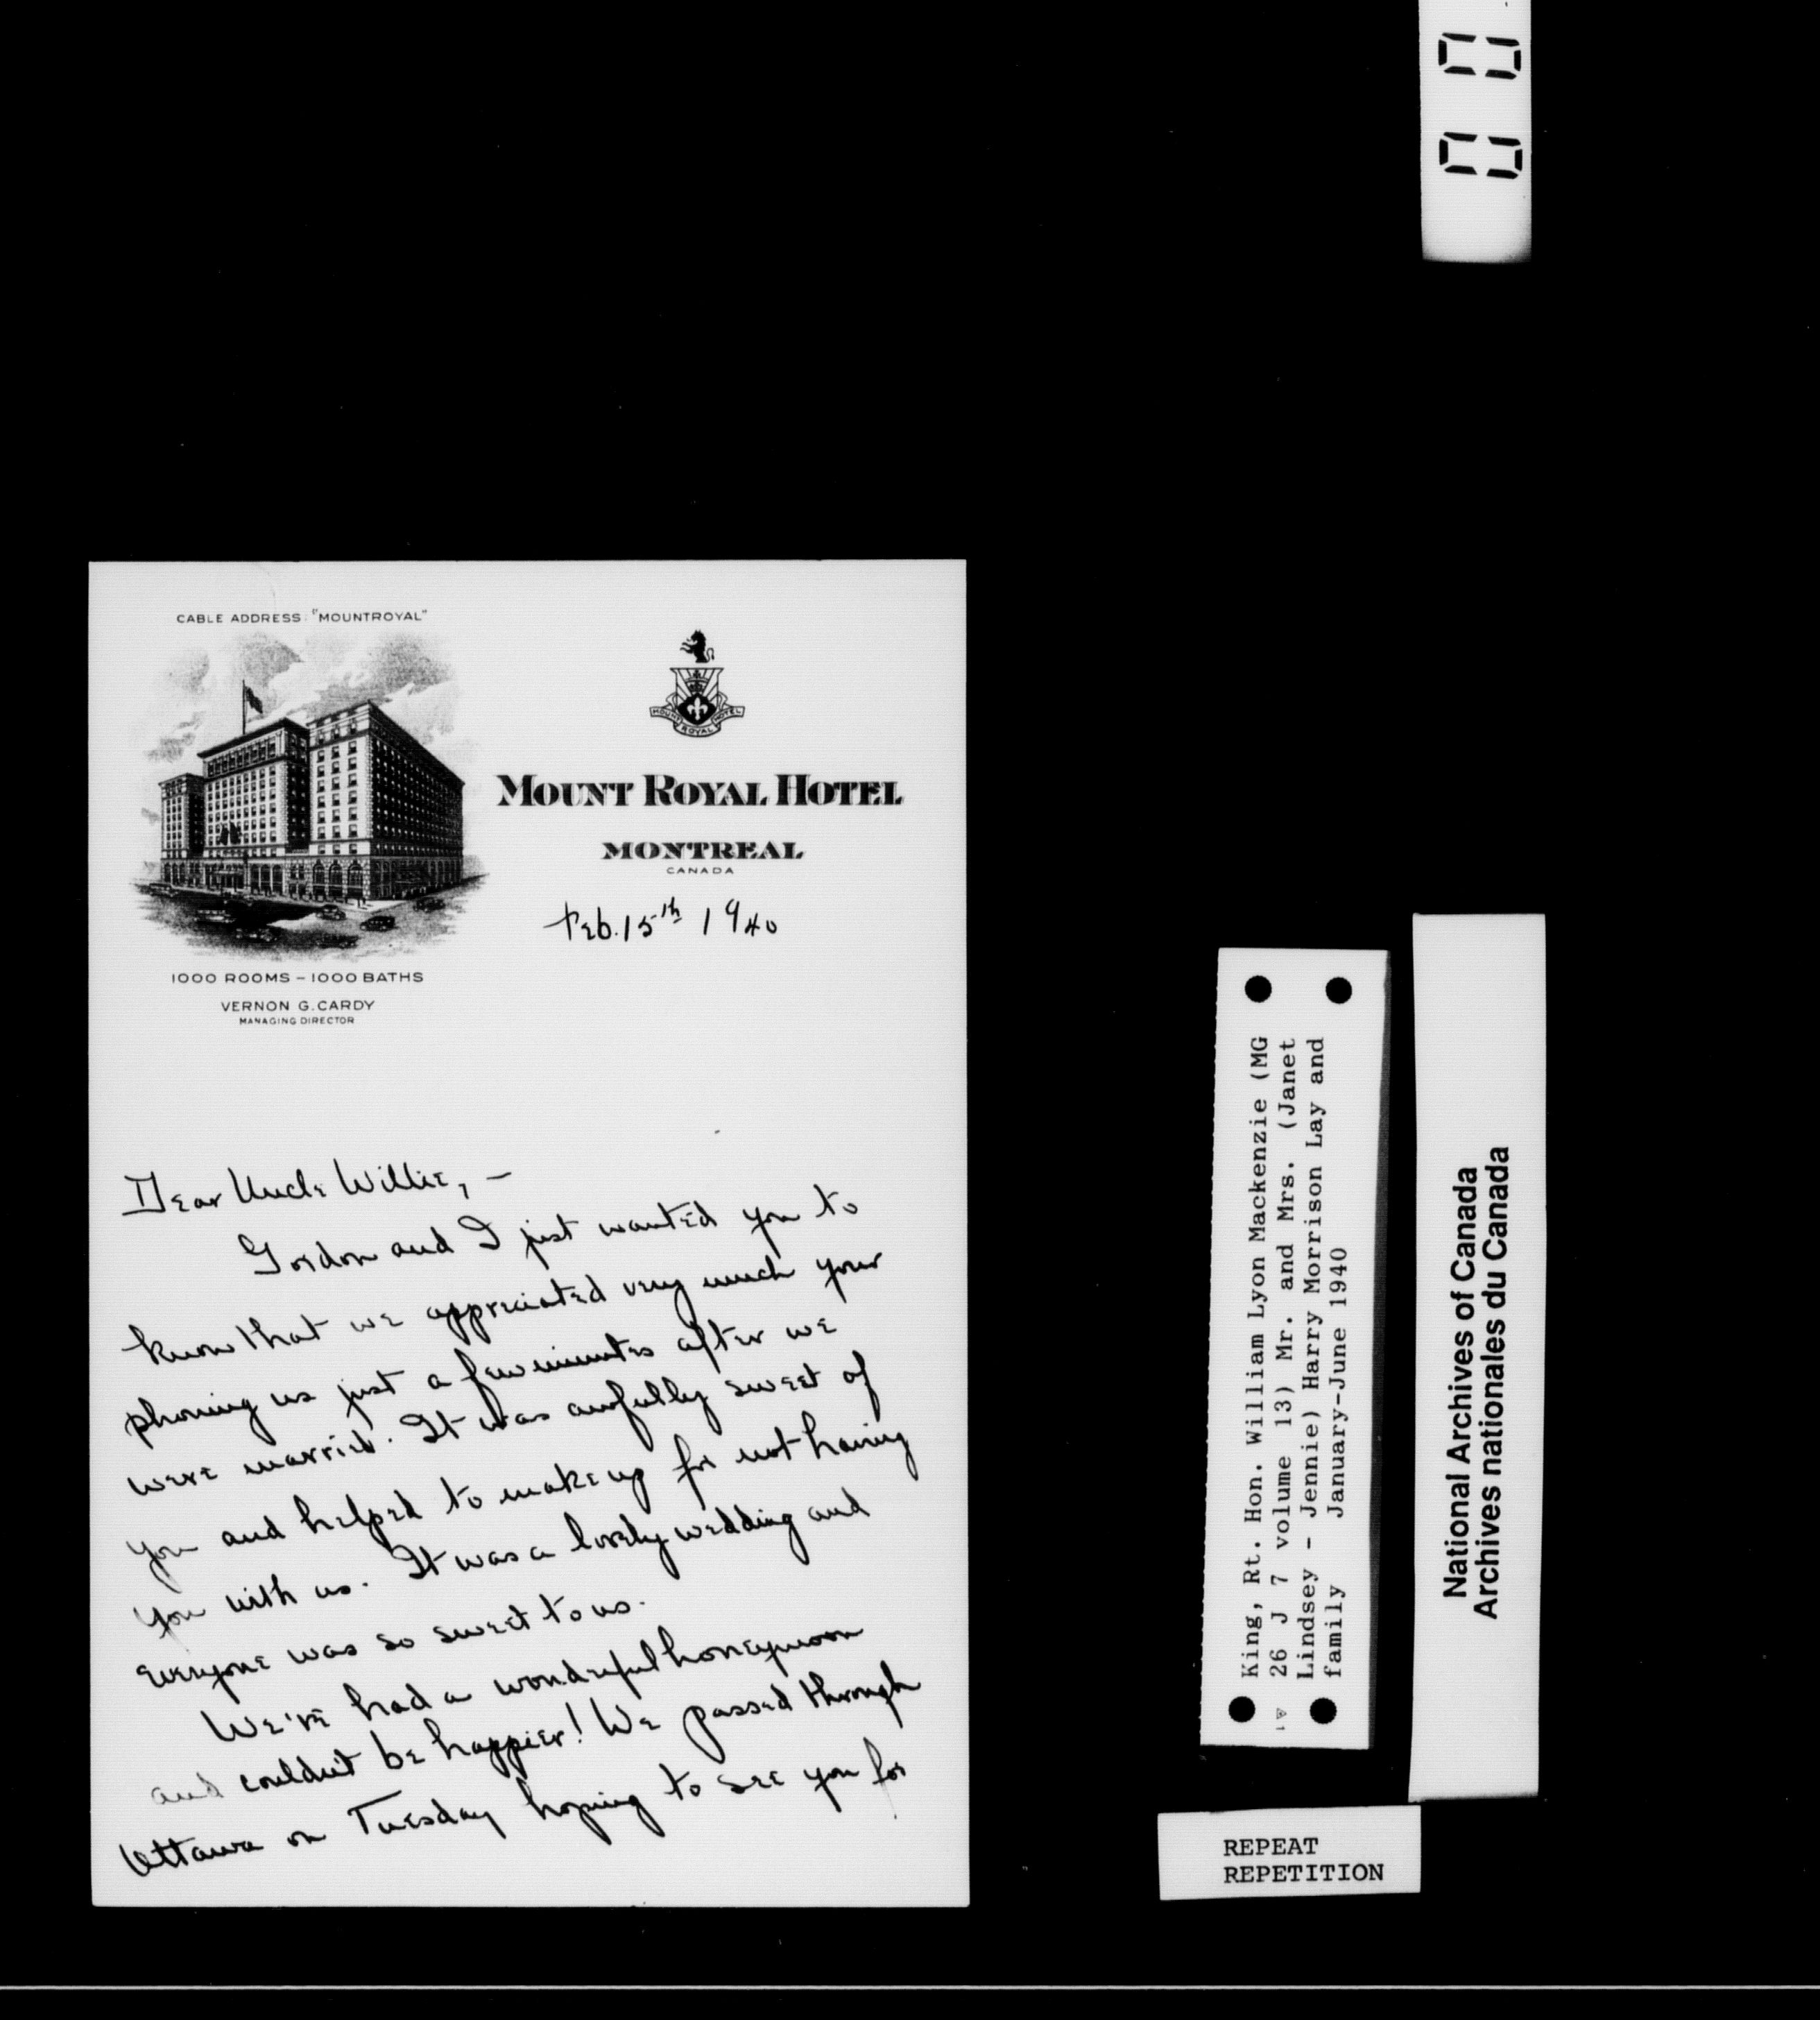 CABLE ADDRESS: "MOUNTROYAL"
MOUNT ROYAL HOTEL
MOUNT ROYAL HOTEL
MONTREAL
CANADA
Feb. 15th 1940
1000 ROOMS – 1000 BATHS
VERNON G. CARDY
MANAGING DIRECTOR
Dear Uncle Willie, –
Gordon and I just wanted you to
know that we appreciated very much your
phoning us just a few minutes after we
were married. It was awfully sweet of
you and helped to make up for not having
you with us. It was a lovely wedding and
everyone was so sweet to us.
We've had a wonderful honeymoon
and couldn't be happier! We passed through
Ottawa on Tuesday hoping to see you for
King, Rt. Hon. William Lyon Mackenzie (MG
26 J 7 volume 13) Mr. and Mrs. (Janet
Lindsey - Jennie) Harry Morrison Lay and
family January-June 1940
National Archives of Canada
Archives nationales du Canada
REPEAT
REPETITION